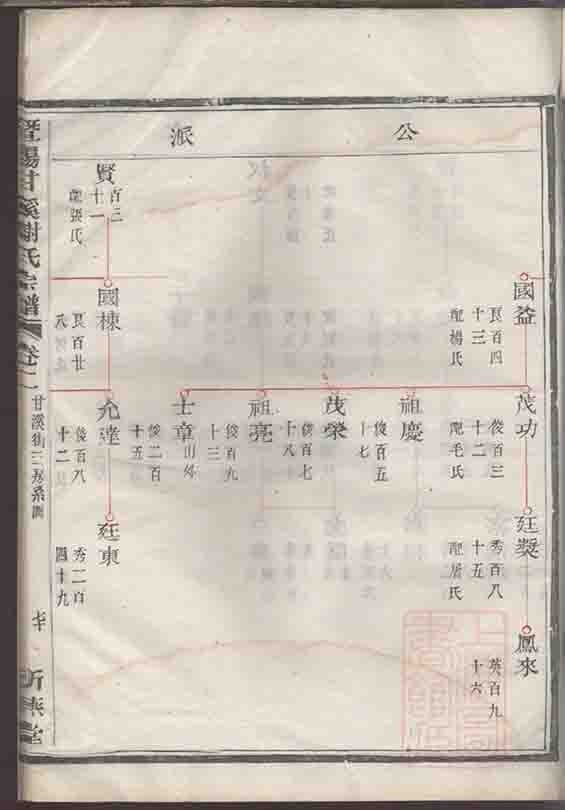 公派
國益
艮百四十三
配楊氏
茂功
俊百三十二
配毛氏
廷獎
秀百八十五
配屠氏
鳳來
英百九十六
祖慶
俊百五十七
茂榮
俊百七十八
祖亮
俊百九十三
士章
俊二百十五
出外
賢
百三十一
配張氏
國棟
艮百廿八
允達
俊百八十二
廷東
秀二百四十九
暨陽甘溪謝氏宗譜
卷二
甘溪街三房系圖